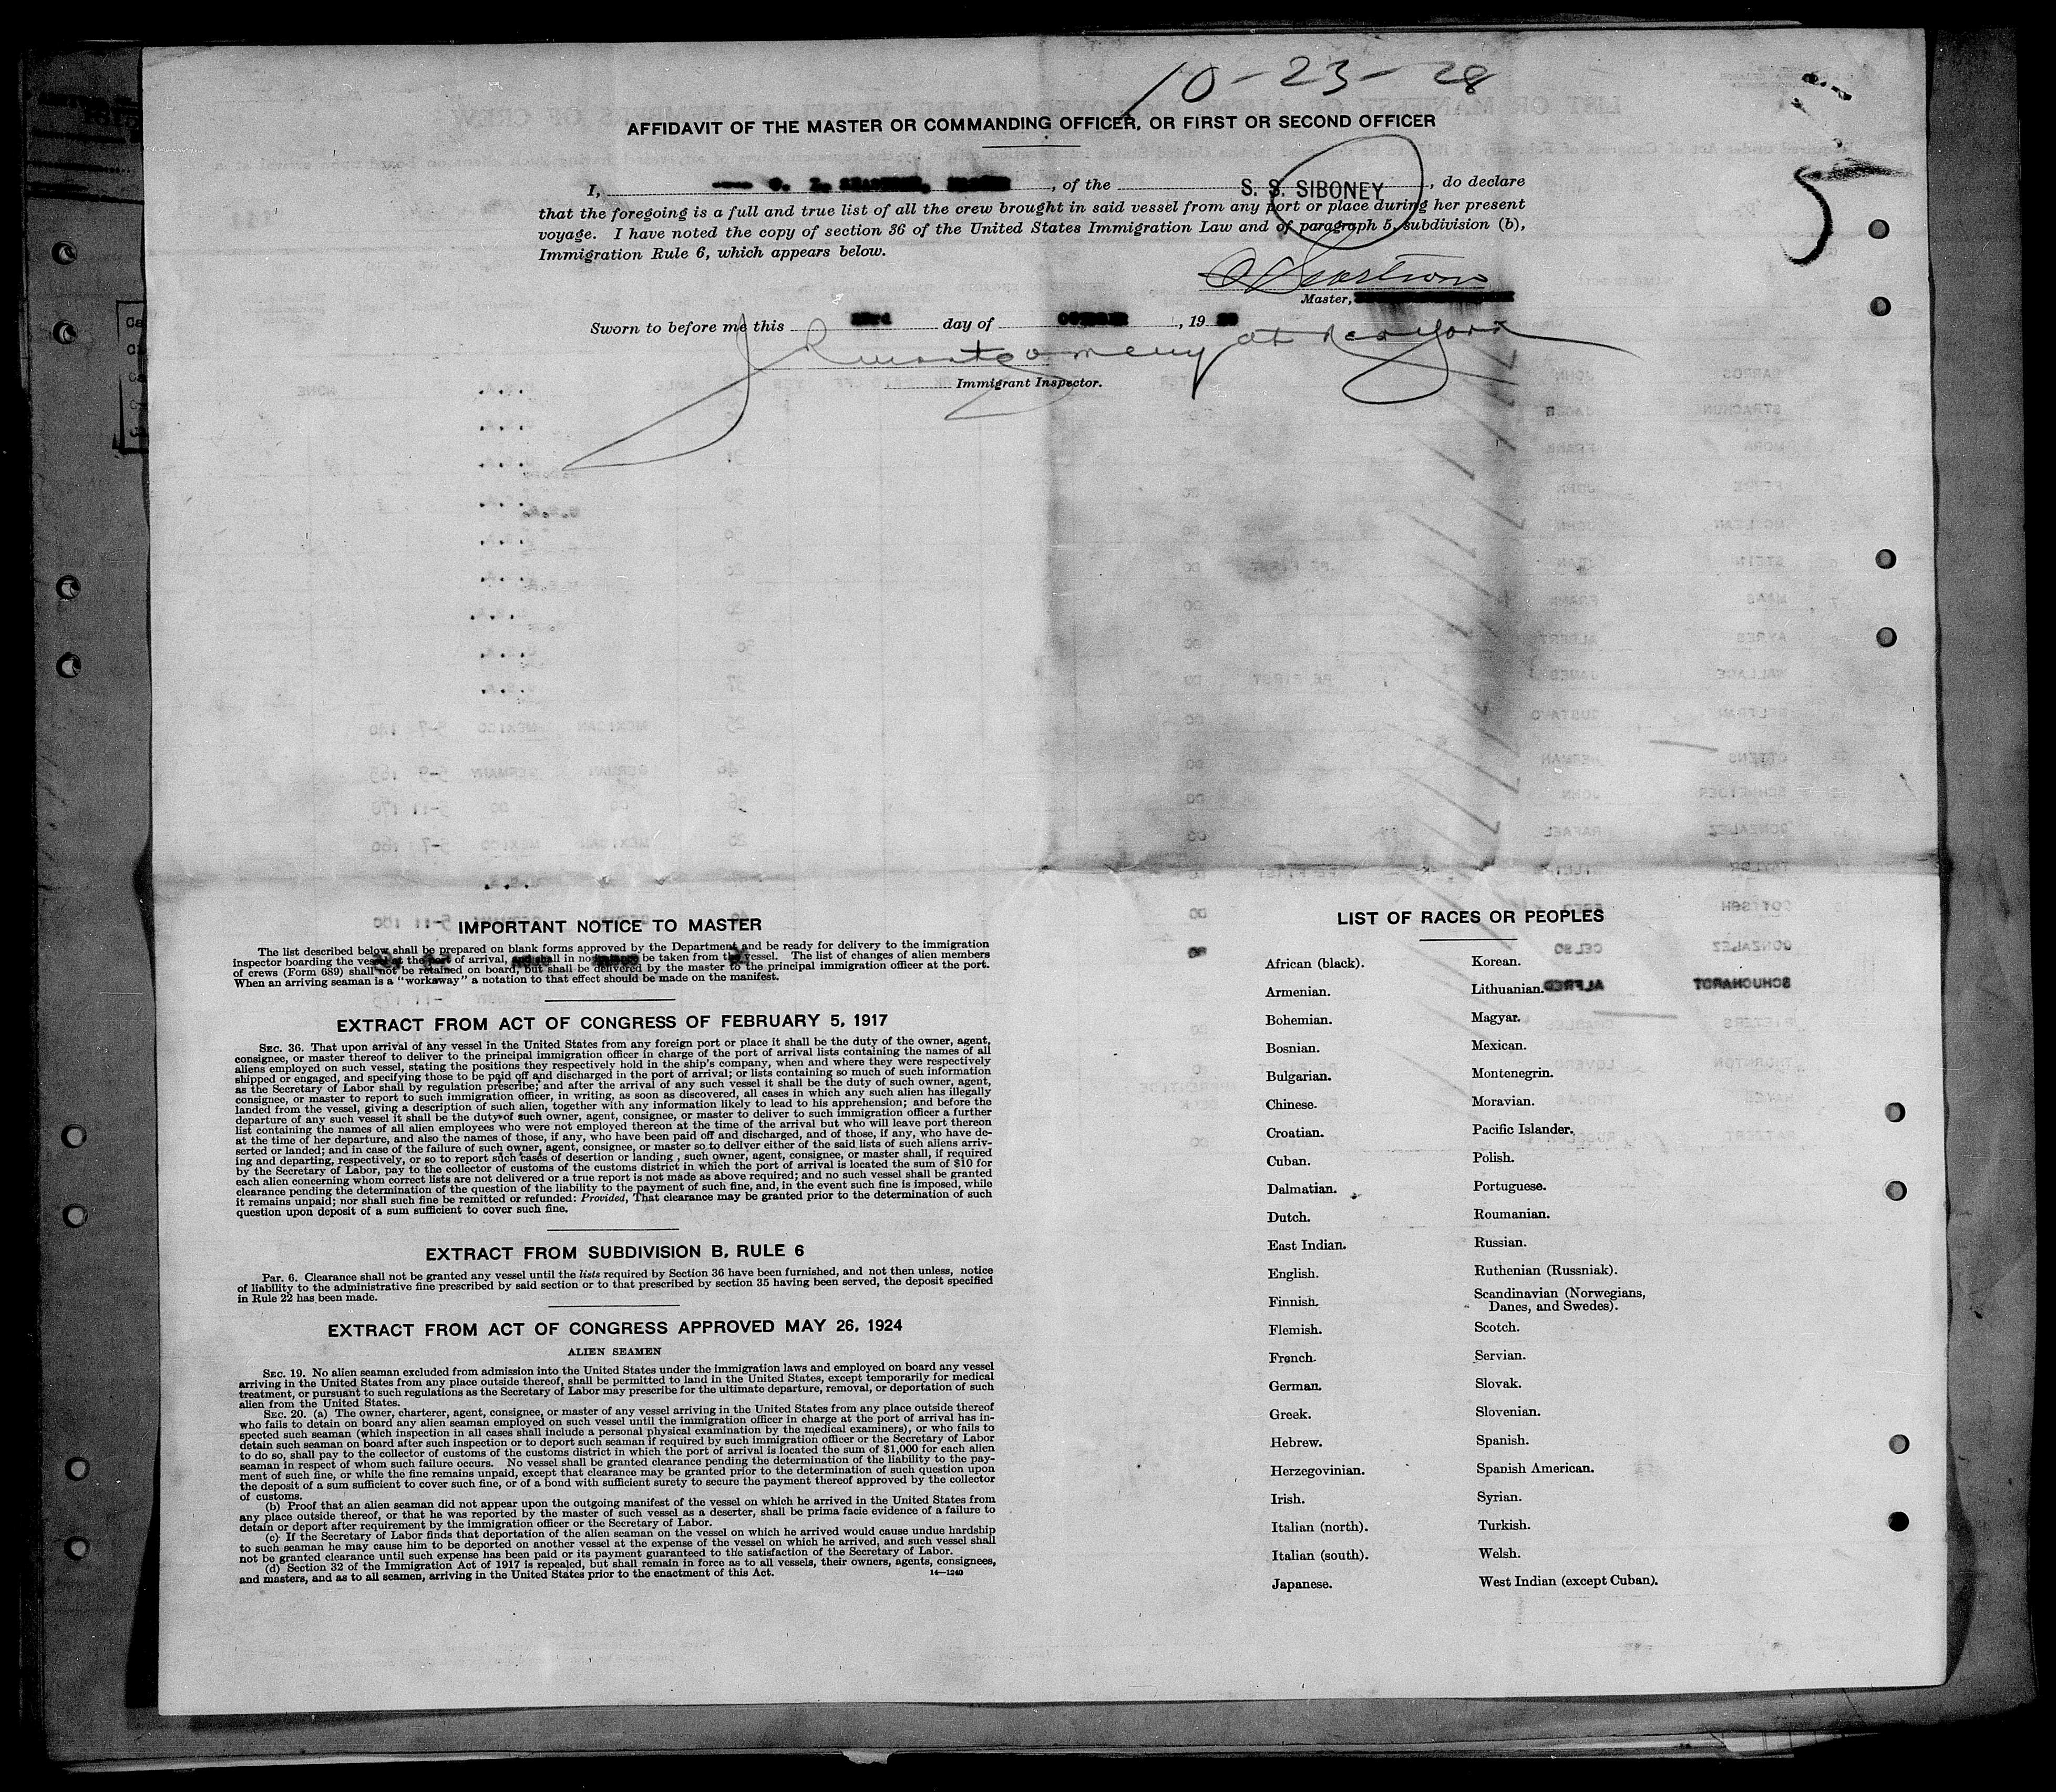 10-23-28
5
AFFIDAVIT OF THE MASTER OR COMMANDING OFFICER, OR FIRST OR SECOND OFFICER
I, , of the S. S. SIBONEY, do declare
that the foregoing is a full and true list of all the crew brought in said vessel from any port or place during her present
voyage. I have noted the copy of section 36 of the United States Immigration Law and of paragraph 5, subdivision (b),
Immigration Rule 6, which appears below.
Master,
Sworn to before me this 23rd day of , 19
Montgomery at New York
Immigrant Inspector.
IMPORTANT NOTICE TO MASTER
The list described below shall be prepared on blank forms approved by the Department and be ready for delivery to the immigration
inspector boarding the vessel at the port of arrival, and shall in no be taken from the vessel. The list of changes of alien members
of crews (Form 689) shall not be retained on board, but shall be delivered by the master to the principal immigration officer at the port.
When an arriving seaman is a "workaway" a notation to that effect should be made on the manifest.
EXTRACT FROM ACT OF CONGRESS OF FEBRUARY 5, 1917
SEC. 36. That upon arrival of any vessel in the United States from any foreign port or place it shall be the duty of the owner, agent,
consignee, or master thereof to deliver to the principal immigration officer in charge of the port of arrival lists containing the names of all
aliens employed on such vessel, stating the positions they respectively hold in the ship's company, when and where they were respectively
shipped or engaged, and specifying those to be paid off and discharged in the port of arrival; or lists containing so much of such information
as the Secretary of Labor shall by regulation prescribe; and after the arrival of any such vessel it shall be the duty of such owner, agent,
consignee, or master to report to such immigration officer, in writing, as soon as discovered, all cases in which any such alien has illegally
landed from the vessel, giving a description of such alien, together with any information likely to lead to his apprehension; and before the
departure of any such vessel it shall be the duty of such owner, agent, consignee, or master to deliver to such immigration officer a further
list containing the names of all alien employees who were not employed thereon at the time of the arrival but who will leave port thereon
at the time of her departure, and also the names of those, if any, who have been paid off and discharged, and of those, if any, who have de-
serted or landed; and in case of the failure of such owner, agent, consignee, or master so to deliver either of the said lists of such aliens arriv-
ing and departing, respectively, or so to report such cases of desertion or landing , such owner, agent, consignee, or master shall, if required
by the Secretary of Labor, pay to the collector of customs of the customs district in which the port of arrival is located the sum of $10 for
each alien concerning whom correct lists are not delivered or a true report is not made as above required; and no such vessel shall be granted
clearance pending the determination of the question of the liability to the payment of such fine, and, in the event such fine is imposed, while
it remains unpaid; nor shall such fine be remitted or refunded: Provided, That clearance may be granted prior to the determination of such
question upon deposit of a sum sufficient to cover such fine.
EXTRACT FROM SUBDIVISION B, RULE 6
Par. 6. Clearance shall not be granted any vessel until the lists required by Section 36 have been furnished, and not then unless, notice
of liability to the administrative fine prescribed by said section or to that prescribed by section 35 having been served, the deposit specified
in Rule 22 has been made.
EXTRACT FROM ACT OF CONGRESS APPROVED MAY 26, 1924
ALIEN SEAMEN
SEC. 19. No alien seaman excluded from admission into the United States under the immigration laws and employed on board any vessel
arriving in the United States from any place outside thereof, shall be permitted to land in the United States, except temporarily for medical
treatment, or pursuant to such regulations as the Secretary of Labor may prescribe for the ultimate departure, removal, or deportation of such
alien from the United States.
SEC. 20. (a) The owner, charterer, agent, consignee, or master of any vessel arriving in the United States from any place outside thereof
who fails to detain on board any alien seaman employed on such vessel until the immigration officer in charge at the port of arrival has in-
spected such seaman (which inspection in all cases shall include a personal physical examination by the medical examiners), or who fails to
detain such seaman on board after such inspection or to deport such seaman if required by such immigration officer or the Secretary of Labor
to do so, shall pay to the collector of customs of the customs district in which the port of arrival is located the sum of $1,000 for each alien
seaman in respect of whom such failure occurs. No vessel shall be granted clearance pending the determination of the liability to the pay-
ment of such fine, or while the fine remains unpaid, except that clearance may be granted prior to the determination of such question upon
the deposit of a sum sufficient to cover such fine, or of a bond with sufficient surety to secure the payment thereof approved by the collector
of customs.
(b) Proof that an alien seaman did not appear upon the outgoing manifest of the vessel on which he arrived in the United States from
any place outside thereof, or that he was reported by the master of such vessel as a deserter, shall be prima facie evidence of a failure to
detain or deport after requirement by the immigration officer or the Secretary of Labor.
(c) If the Secretary of Labor finds that deportation of the alien seaman on the vessel on which he arrived would cause undue hardship
to such seaman he may cause him to be deported on another vessel at the expense of the vessel on which he arrived, and such vessel shall
not be granted clearance until such expense has been paid or its payment guaranteed to the satisfaction of the Secretary of Labor.
(d) Section 32 of the Immigration Act of 1917 is repealed, but shall remain in force as to all vessels, their owners, agents, consignees,
and masters, and as to all seamen, arriving in the United States prior to the enactment of this Act.
14—1240
LIST OF RACES OR PEOPLES
African (black).
Armenian.
Bohemian.
Bosnian.
Bulgarian.
Chinese.
Croatian.
Cuban.
Dalmatian.
Dutch.
East Indian.
English.
Finnish.
Flemish.
French.
German.
Greek.
Hebrew.
Herzegovinian.
Irish.
Italian (north).
Italian (south).
Japanese.
Korean.
Lithuanian.
Magyar.
Mexican.
Montenegrin.
Moravian.
Pacific Islander.
Polish.
Portuguese.
Roumanian.
Russian.
Ruthenian (Russniak).
Scandinavian (Norwegians,
Danes, and Swedes).
Scotch.
Servian.
Slovak.
Slovenian.
Spanish.
Spanish American.
Syrian.
Turkish.
Welsh.
West Indian (except Cuban).